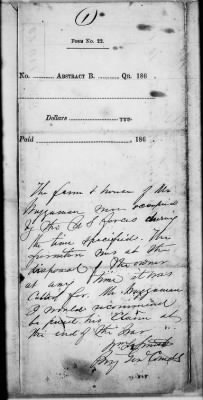 1
Form No. 22.
No. ABSTRACT B. QR. 186
Dollars cts.
Paid , 186
The farm & house of Mr
was occupied
by the U S forces during
the time specified. The
furniture was at the
disposal of the owner
at any time it was
called for. Mr
I would recommend
be paid his claim at
the end of the War
Brig Gen Comdg